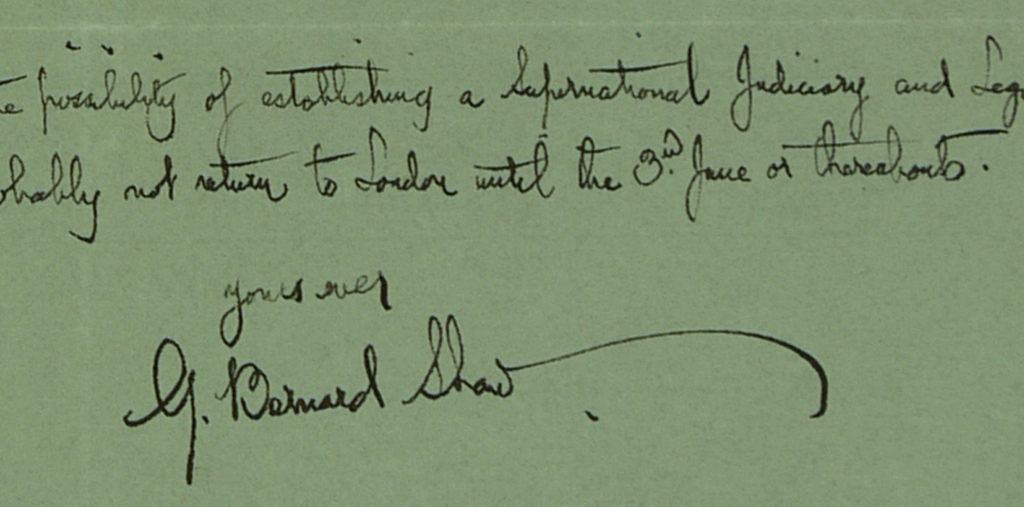 e possibility of establishing a Supernational Judiciary and Leg
obably not return to London until the 3rd. June or thereabouts.
yours ever
G. Bernard Shaw